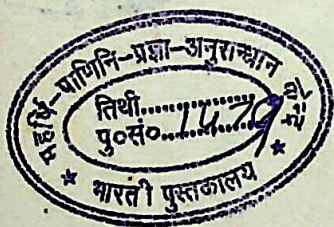 महर्षि-पाणिनि-प्रज्ञा-अनुसन्धान केन्द्र
तिथी....................
पु०सं०....1479
* भारती पुस्तकालय *